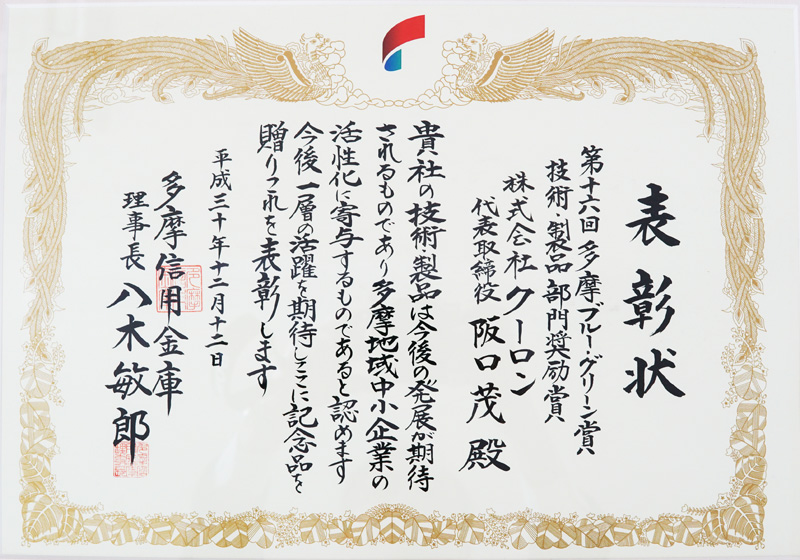 表彰状
第十六回 多摩ブルー・グリーン賞
技術・製品部門奨励賞
株式会社 クーロン
代表取締役 阪口茂 殿
貴社の技術・製品は今後の発展が期待
されるものであり多摩地域中小企業の
活性化に寄与するものであると認めます
今後一層の活躍を期待しここに記念品を
贈りこれを表彰します
平成三十年十二月十二日
多摩信用金庫
理事長 八木敏郎